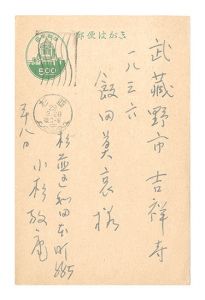 郵便はがき
500
武蔵野市吉祥寺
一八三六
飯田莫哀様
杉並区和田本町
885
小杉放庵